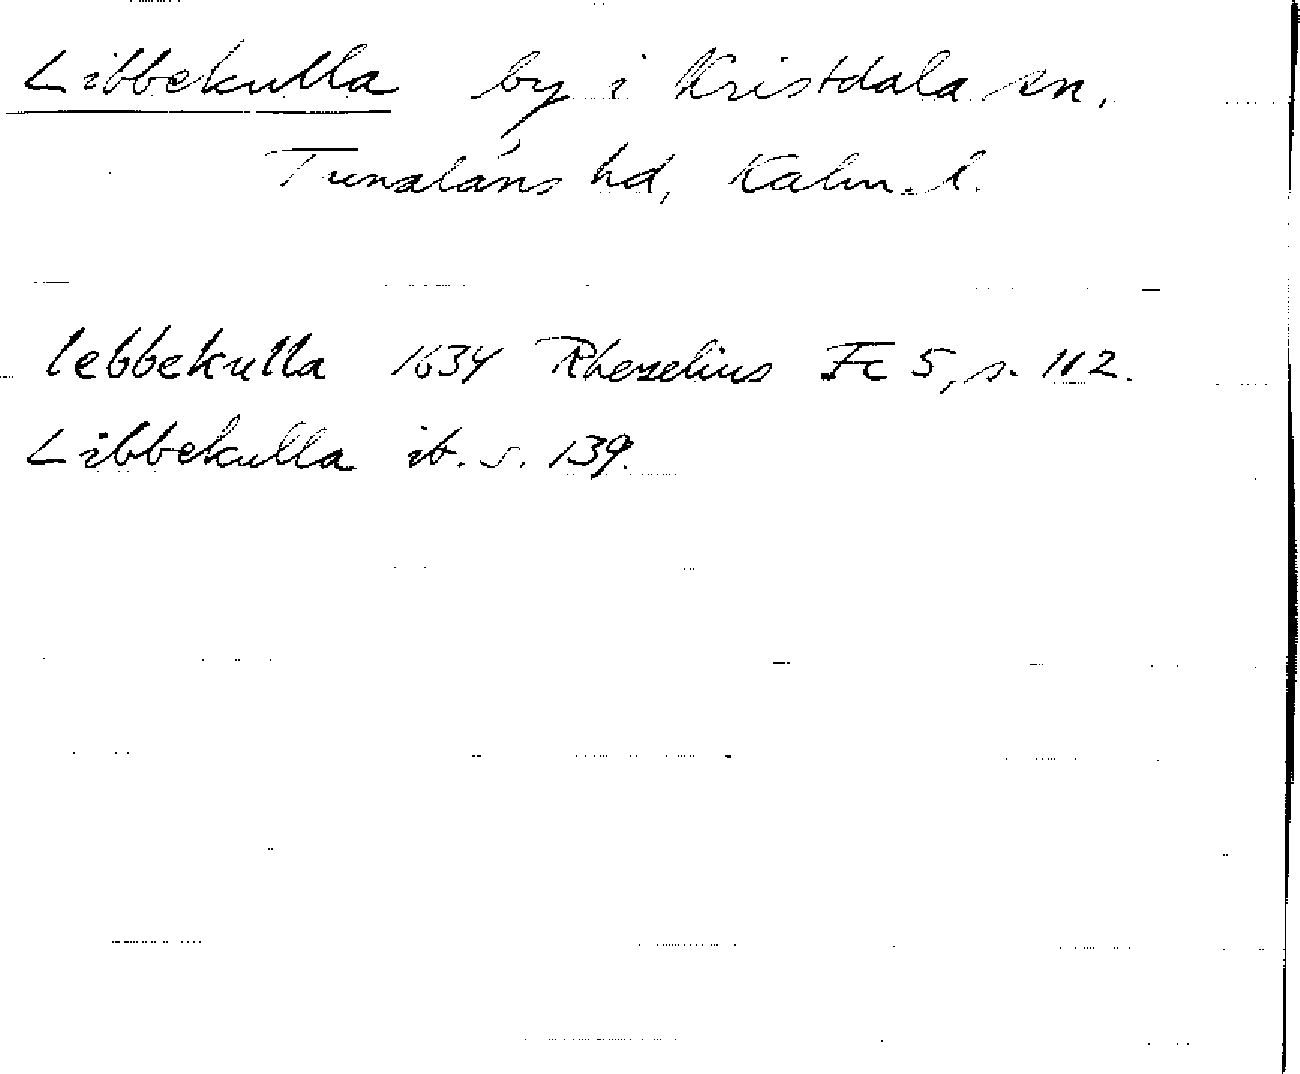 Libbekulla by i Kristdala sn.
Tunaläns hd, Kalm. l.
lebbekulla 1634 Rhezelius Fc 5, s. 112.
Libbekulla ib. s. 139.